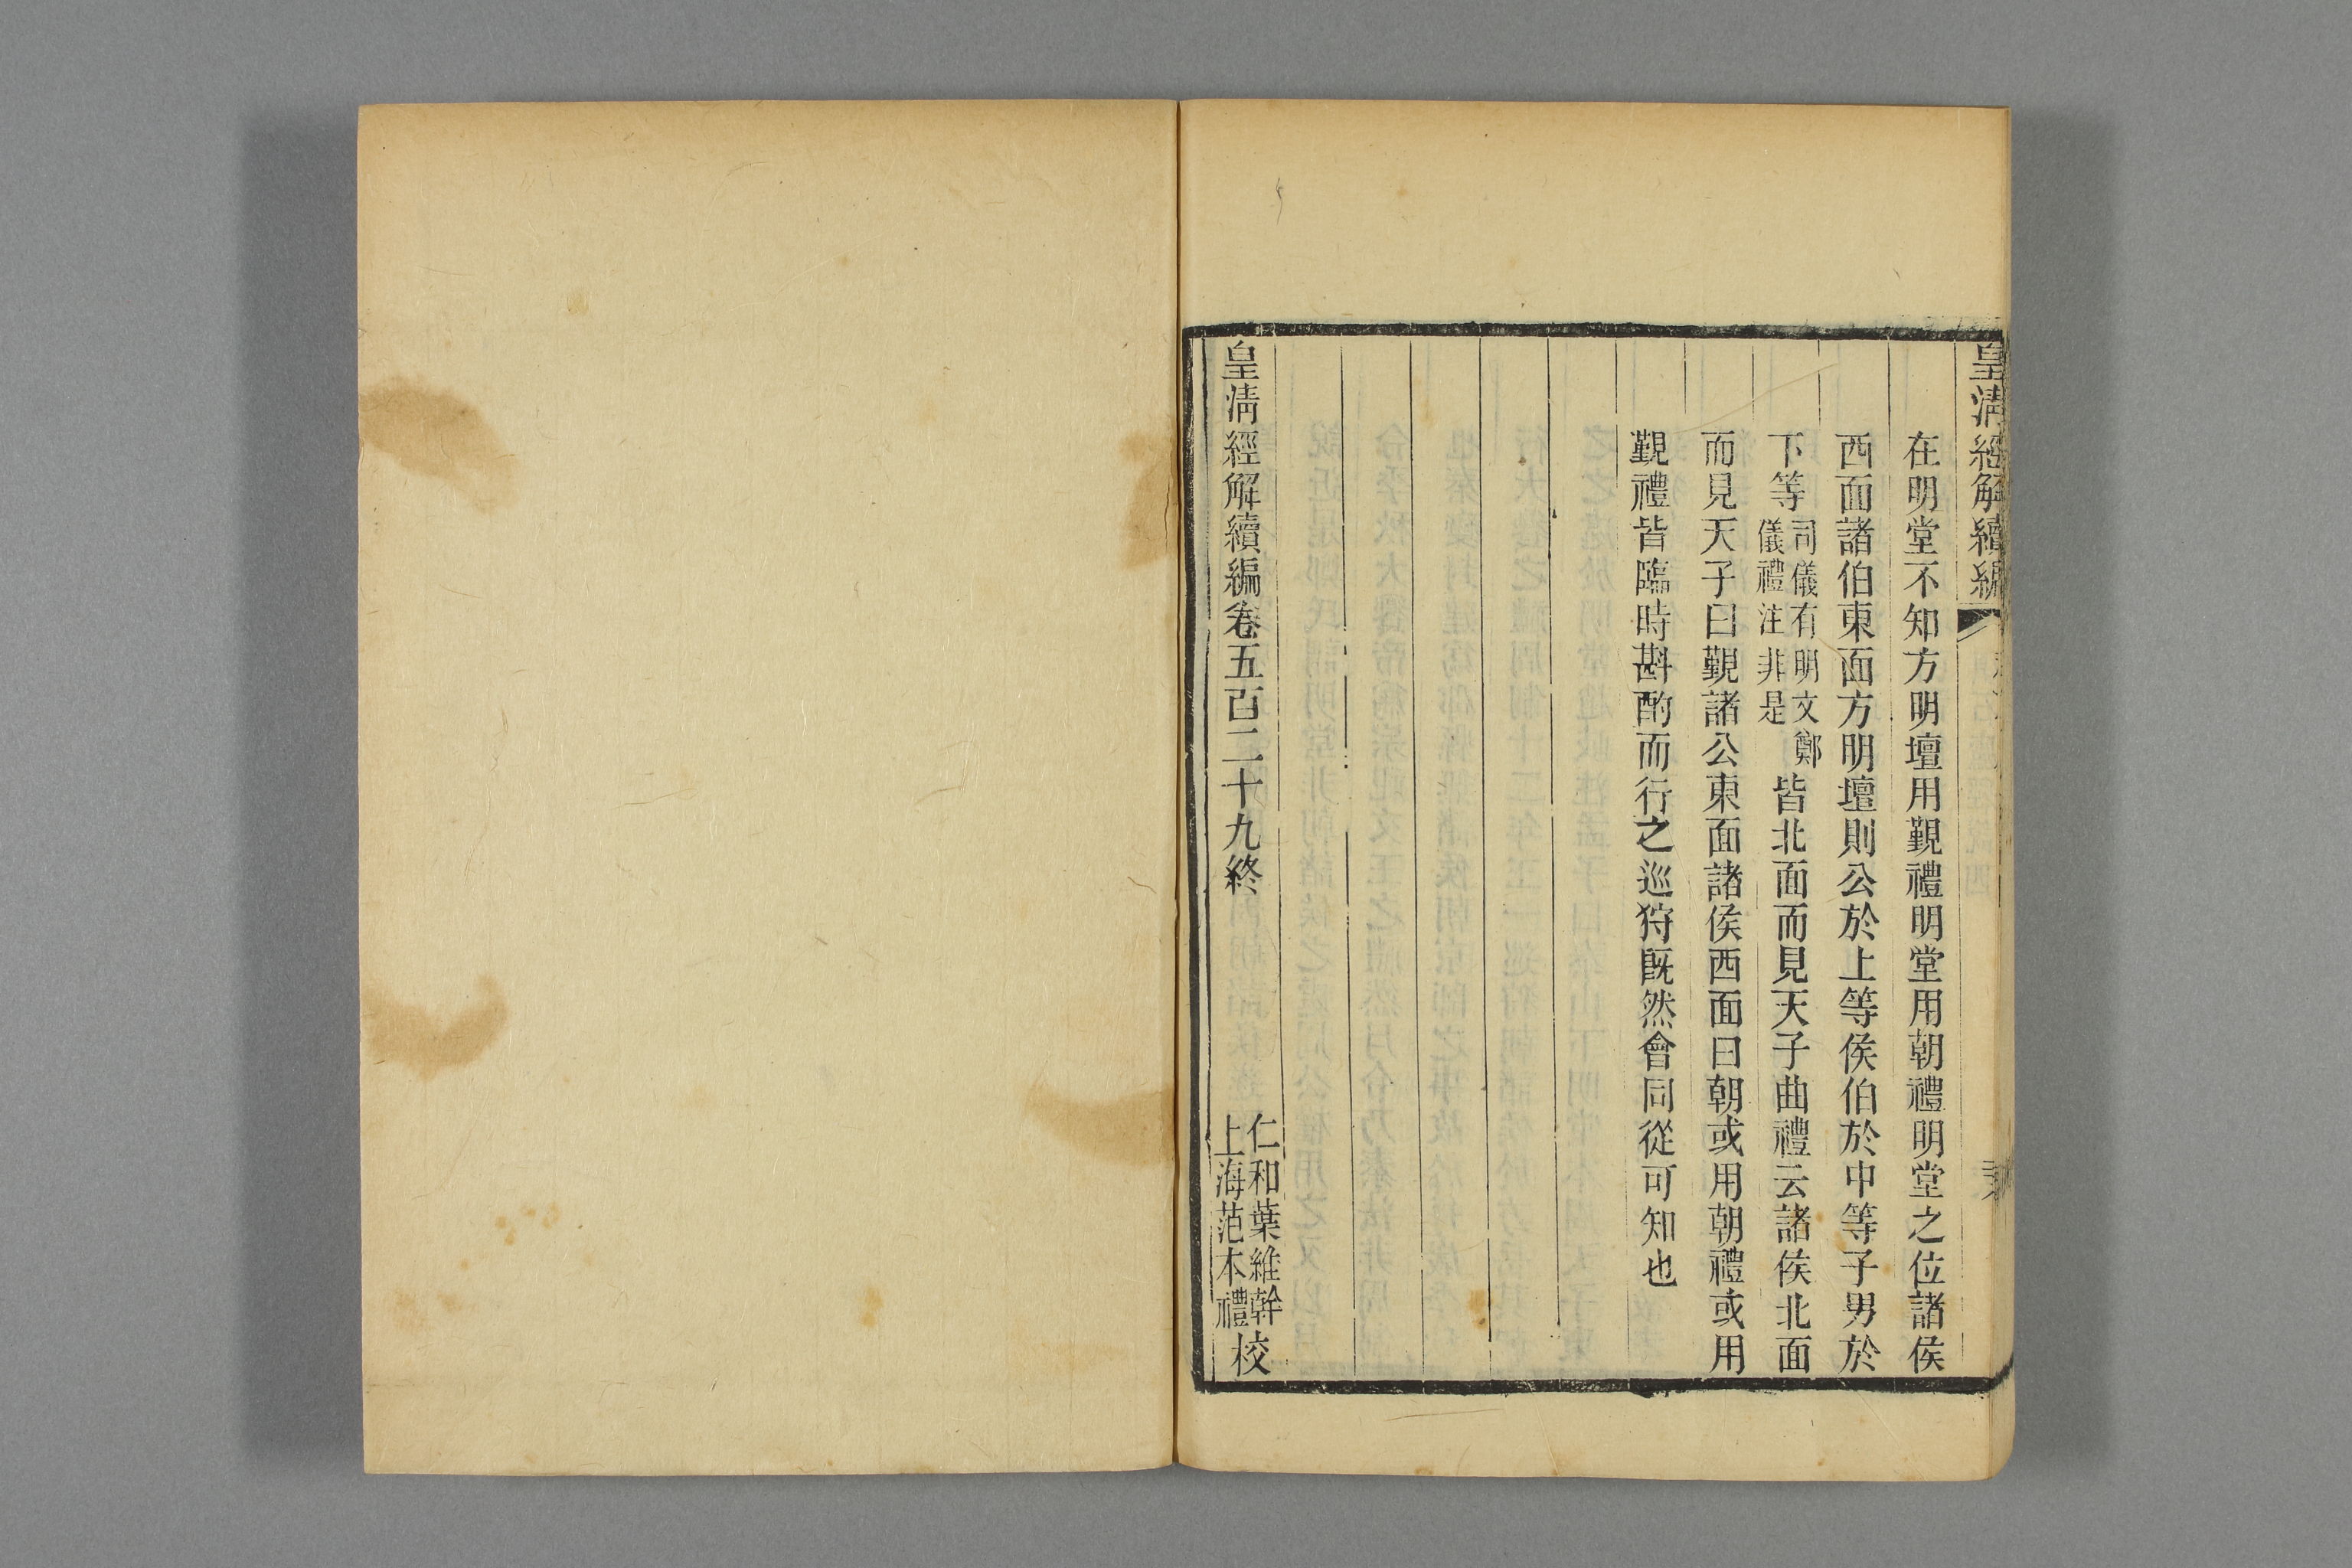 皇清經解續編
在明堂不知方明壇用覲禮明堂用朝禮明堂之位諸侯
西面諸伯東面方明壇則公於上等侯伯於中等子男於
下等司儀有明文鄭儀禮注非是皆北面而見天子曲禮云諸侯北面
而見天子曰覲諸公東面諸侯西面曰朝或用朝禮或用
覲禮皆臨時斟酌而行之巡狩既然會同從可知也
皇清經解續編卷五百二十九終
仁和葉維幹
上海范本禮
校